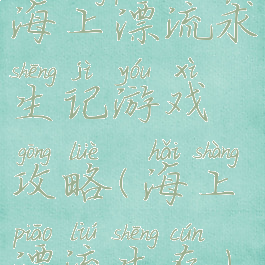 海上漂流求
shēng jì yóu xì
生记游戏
gōng lüè hǎi shàng
攻略(海上
piāo liú shēng cún
漂流生存)